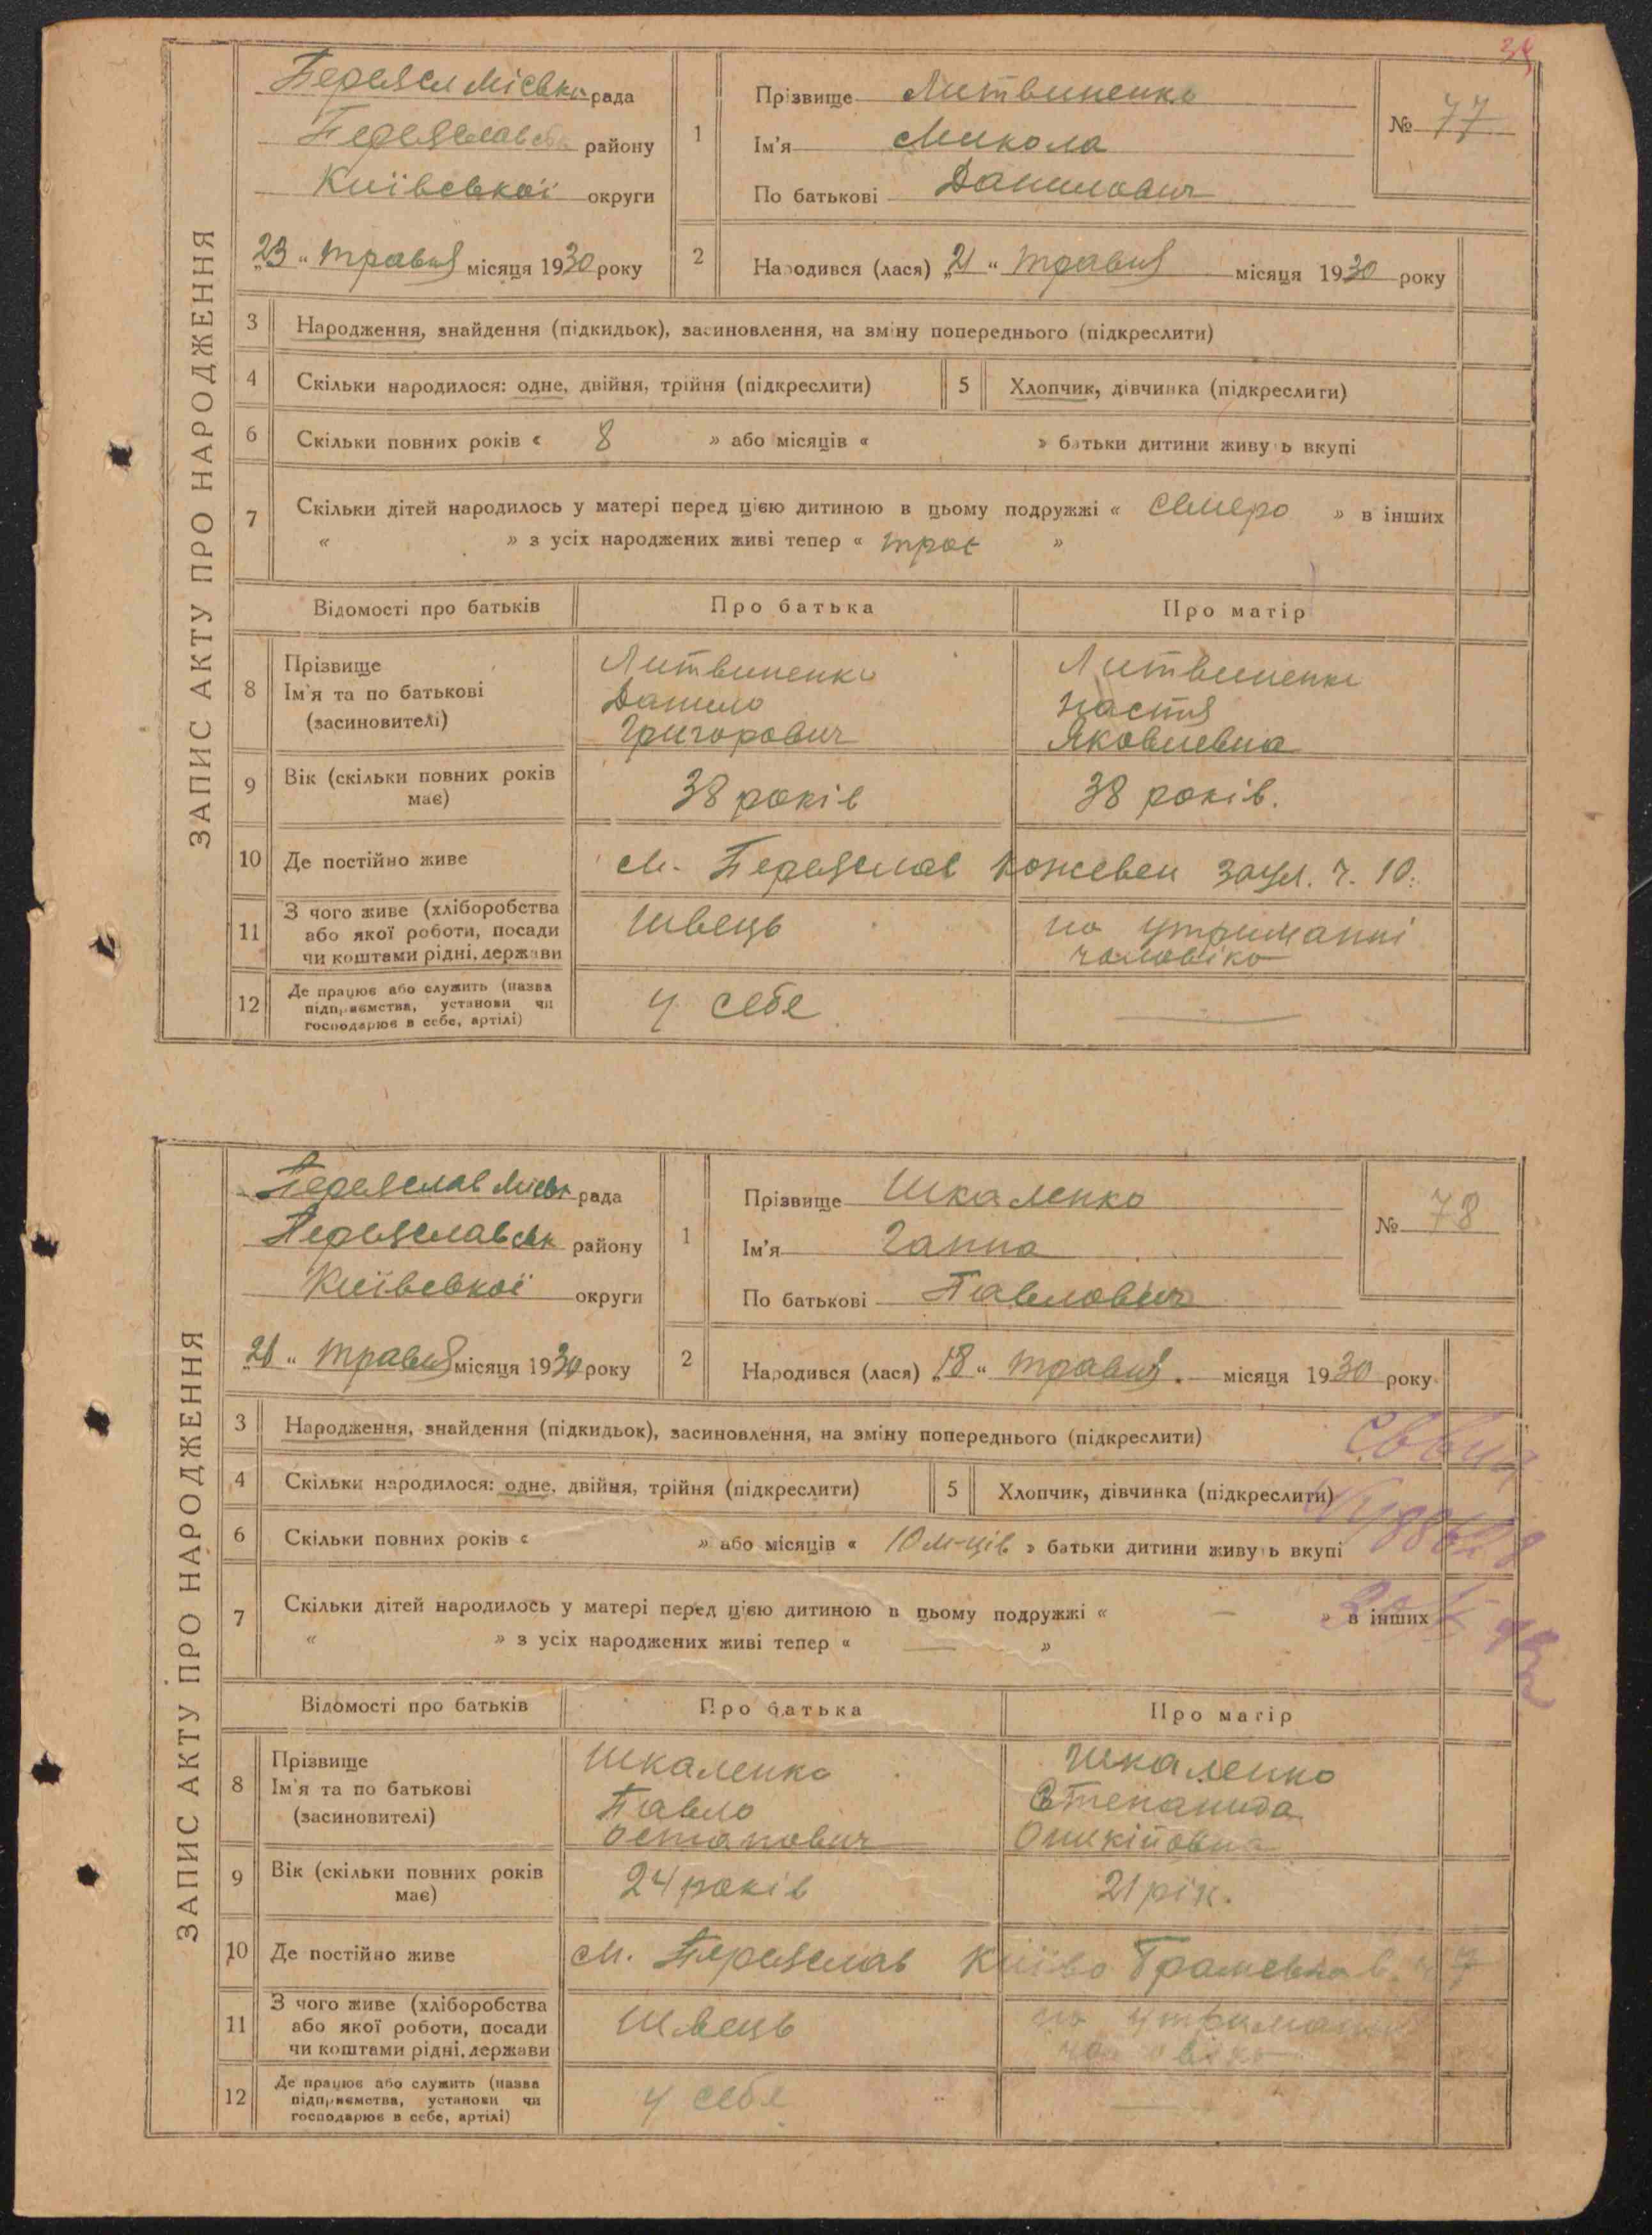 39
ЗАПИС АКТУ ПРО НАРОДЖЕННЯ
Переясл міська рада
Переяславськ району
Київської округи
„23“ травня місяця 1930 року
1 Прізвище Литвиненко
Ім'я Микола
По батькові Данилович
№ 77
2 Народився (лася) „21“ травня місяця 1930 року
3 Народження, знайдення (підкидьок), засиновлення, на зміну попереднього (підкреслити)
4 Скільки народилося: одне, двійня, трійня (підкреслити) 5 Хлопчик, дівчинка (підкреслити)
6 Скільки повних років « 8 » або місяців « » батьки дитини живуть вкупі
7 Скільки дітей народилось у матері перед цією дитиною в цьому подружжі « семеро » в інших
« » з усіх народжених живі тепер « троє »
Відомості про батьків Про батька Про матір
8 Прізвище Ім'я та по батькові (засиновителі)
Литвиненко Данило Григорович
Литвиненко Настя Яковлевна
9 Вік (скільки повних років має) 38 років 38 років.
10 Де постійно живе м. Переяслав Кожевен заул. ч. 10.
11 З чого живе (хліборобства або якої роботи, посади чи коштами рідні, держави
Швець
на утриманні чоловіка
12 Де працює або служить (назва підприємства, установи чи господарює в себе, артілі)
у себе —
ЗАПИС АКТУ ПРО НАРОДЖЕННЯ
Переяслав міськ рада
Переяславськ району
Київської округи
„21“ травня місяця 1930 року
1 Прізвище Шкаленко
Ім'я Ганна
По батькові Павлович
№ 78
2 Народився (лася) „18“ травня. місяця 1930 року
3 Народження, знайдення (підкидьок), засиновлення, на зміну попереднього (підкреслити)
4 Скільки народилося: одне, двійня, трійня (підкреслити) 5 Хлопчик, дівчинка (підкреслити)
6 Скільки повних років « » або місяців « 10 м-ців » батьки дитини живуть вкупі
7 Скільки дітей народилось у матері перед цією дитиною в цьому подружжі « — » в інших
« » з усіх народжених живі тепер « — »
Відомості про батьків Про батька Про матір
8 Прізвище Ім'я та по батькові (засиновителі)
Шкаленко Павло Остапович
Шкаленко Степанида
9 Вік (скільки повних років має) 24 років 21 рік.
10 Де постійно живе м. Переяслав Київо 7
11 З чого живе (хліборобства або якої роботи, посади чи коштами рідні, держави
Швець
на утриманні чоловіка
12 Де працює або служить (назва підприємства, установи чи господарює в себе, артілі)
у себе —